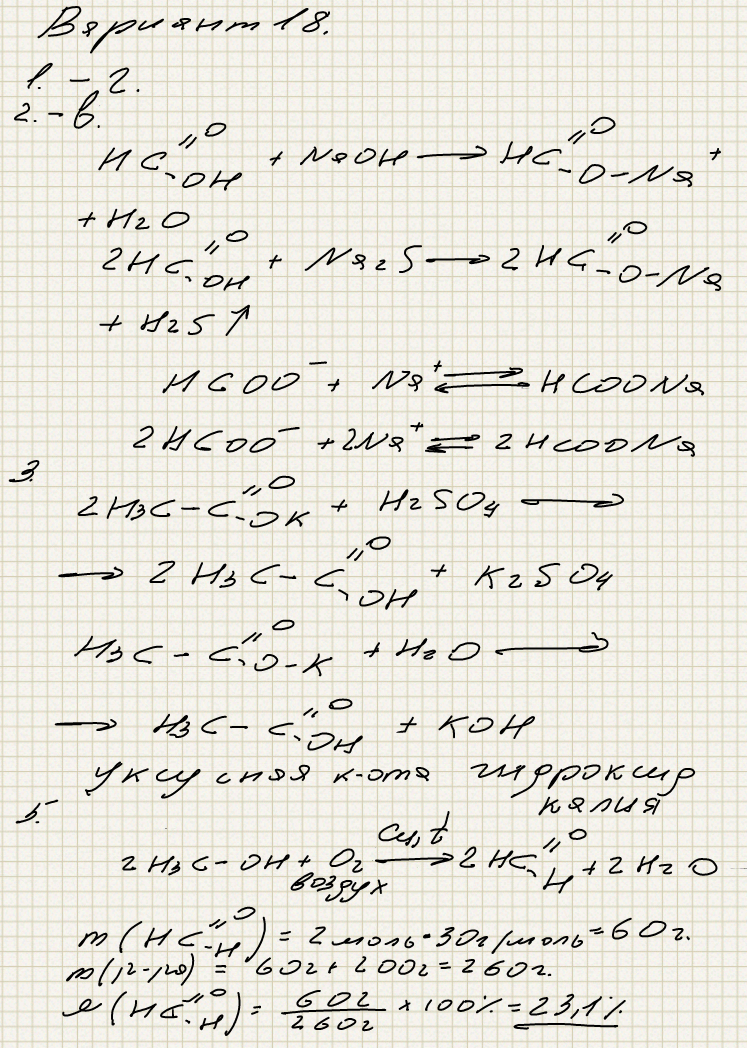 Вариант 18.
1. – г.
2. – в.
HC=O–OH + NaOH → HC=O–O–Na⁺
+ H₂O
2HC=O–OH + Na₂S → 2HC=O–O–Na
+ H₂S↑
HCOO⁻ + Na⁺ ⇄ HCOONa
2HCOO⁻ + 2Na⁺ ⇄ 2HCOONa
3.
2H₃C – C=O–OK + H₂SO₄ →
→ 2H₃C – C=O–OH + K₂SO₄
H₃C – C=O–O–K + H₂O →
→ H₃C – C=O–OH + KOH
уксусная к-ота гидроксид
калия
5.
2H₃C–OH + O₂ Cu, t → 2HC=O–H + 2H₂O
воздух
m(HC=O–H) = 2 моль · 30г/моль = 60г.
m(р-ра) = 60г + 200г = 260г.
(HC=O–H) = 60г/260г × 100% = 23,1%